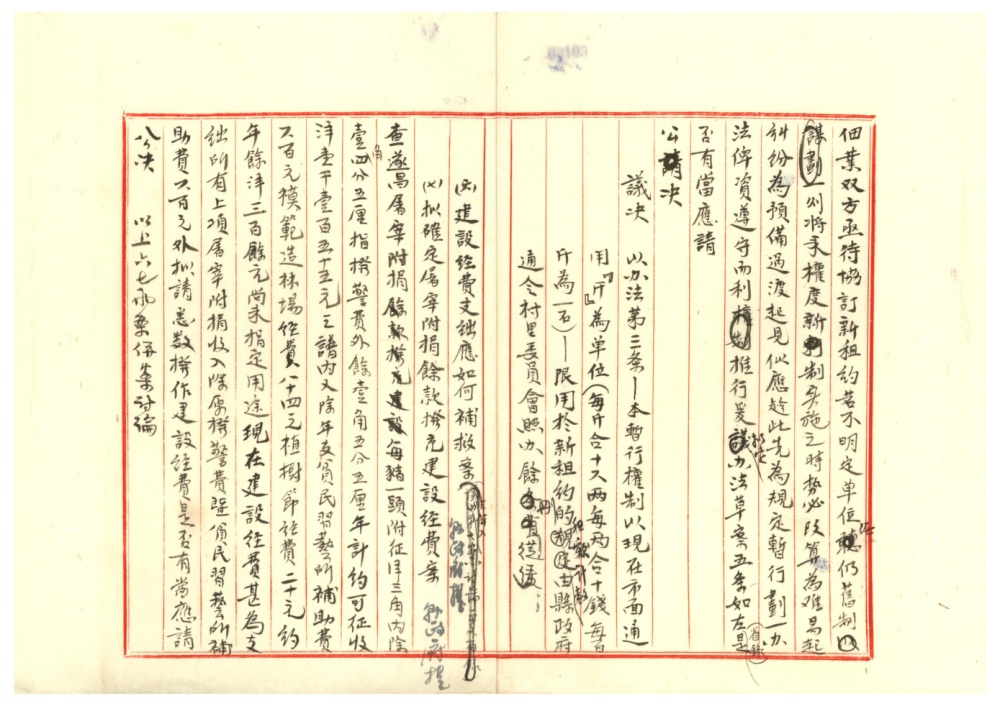 佃業双方亟待協訂新租約若不明定單位仍舊制
謀劃一则將來權度新制实施之時势必改算為难易起
糾紛為預備過渡起見似應趁此先為規定暫行劃一办
法俾資遵守而利推行爰办法草案五条如左是
否有當應請
公决
議决 以办法第三条—本暫行權制以現在市面通
用『斤』為單位(每斤合十六两每两合十錢每百
斤為一石)—限用於新租約的由縣政府
通令村里委員會照办餘毋須從緩
(六)建設經費支絀應如何補救案 縣政府提
(七)拟確定屠宰附捐餘款撥充建設經費案 縣政府提
查遂昌屠宰附捐餘款撥充建設每豬一頭附征洋三角内除
壹角四分五厘指撥警費外餘壹角五分五厘年計約可征收
洋壹千壹百五十五元之譜内又除年支貧民習藝所補助費
六百元模範造林場經費八十四元植樹節經費二十元約
年餘洋三百餘元尚未指定用途現在建設經費甚為支
絀所有上項屠宰附捐收入除原撥警費暨貧民習藝所補
助費六百元外拟請悉数撥作建設經費是否有當應請
公决 以上六七两案併案討論
00103